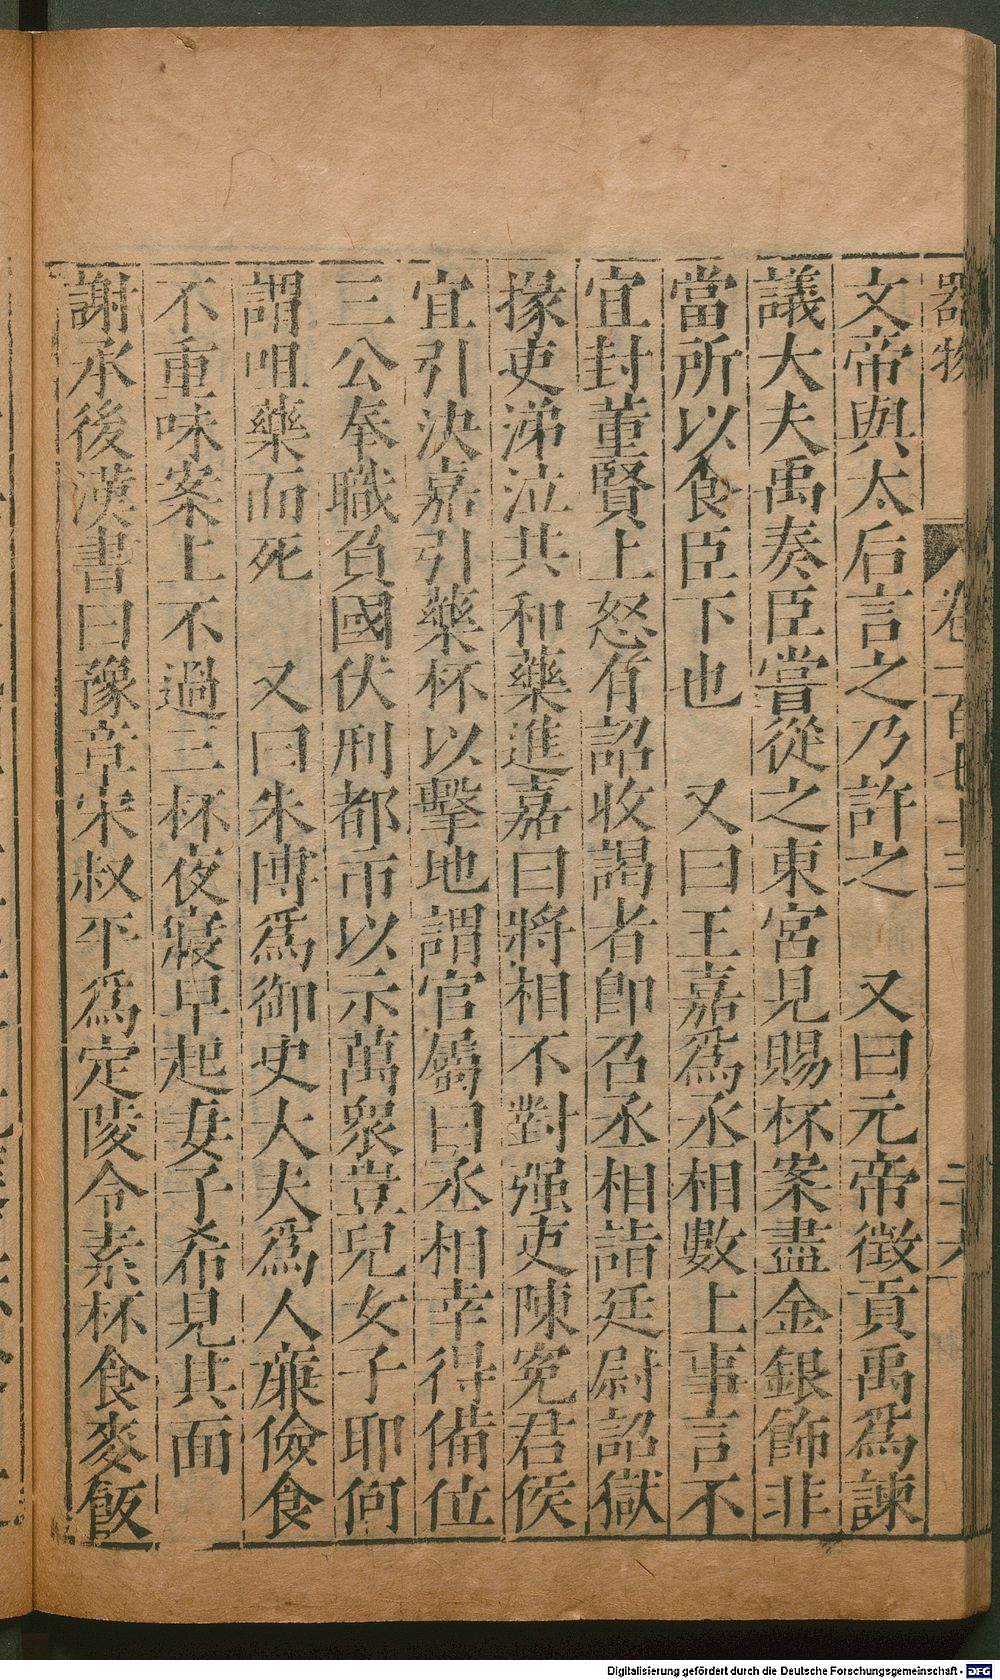 器物 卷一百七十三 二十六
文帝與太后言之乃許之 又曰元帝徴貢禹爲諫
議大夫禹奏臣嘗從之東宮見賜杯案盡金銀飾非
當所以食臣下也 又曰王嘉爲丞相數上事言不
宜封董賢上怒有詔收謁者即召丞相詣廷尉詔獄
掾吏涕泣共和藥進嘉曰將相不對强吏陳寃君侯
宜引決嘉引藥杯以擊地謂官屬曰丞相幸得備位
三公奉職負國伏刑都市以示萬衆豈兒女子耶何
謂咀藥而死 又曰朱博爲御史大夫爲人亷儉食
不重味案上不過三杯夜寢早起妻子希見其面
謝承後漢書曰豫章宋叔平爲定陵令素杯食麥飯
Digitalisierung gefördert durch die Deutsche Forschungsgemeinschaft - DFG